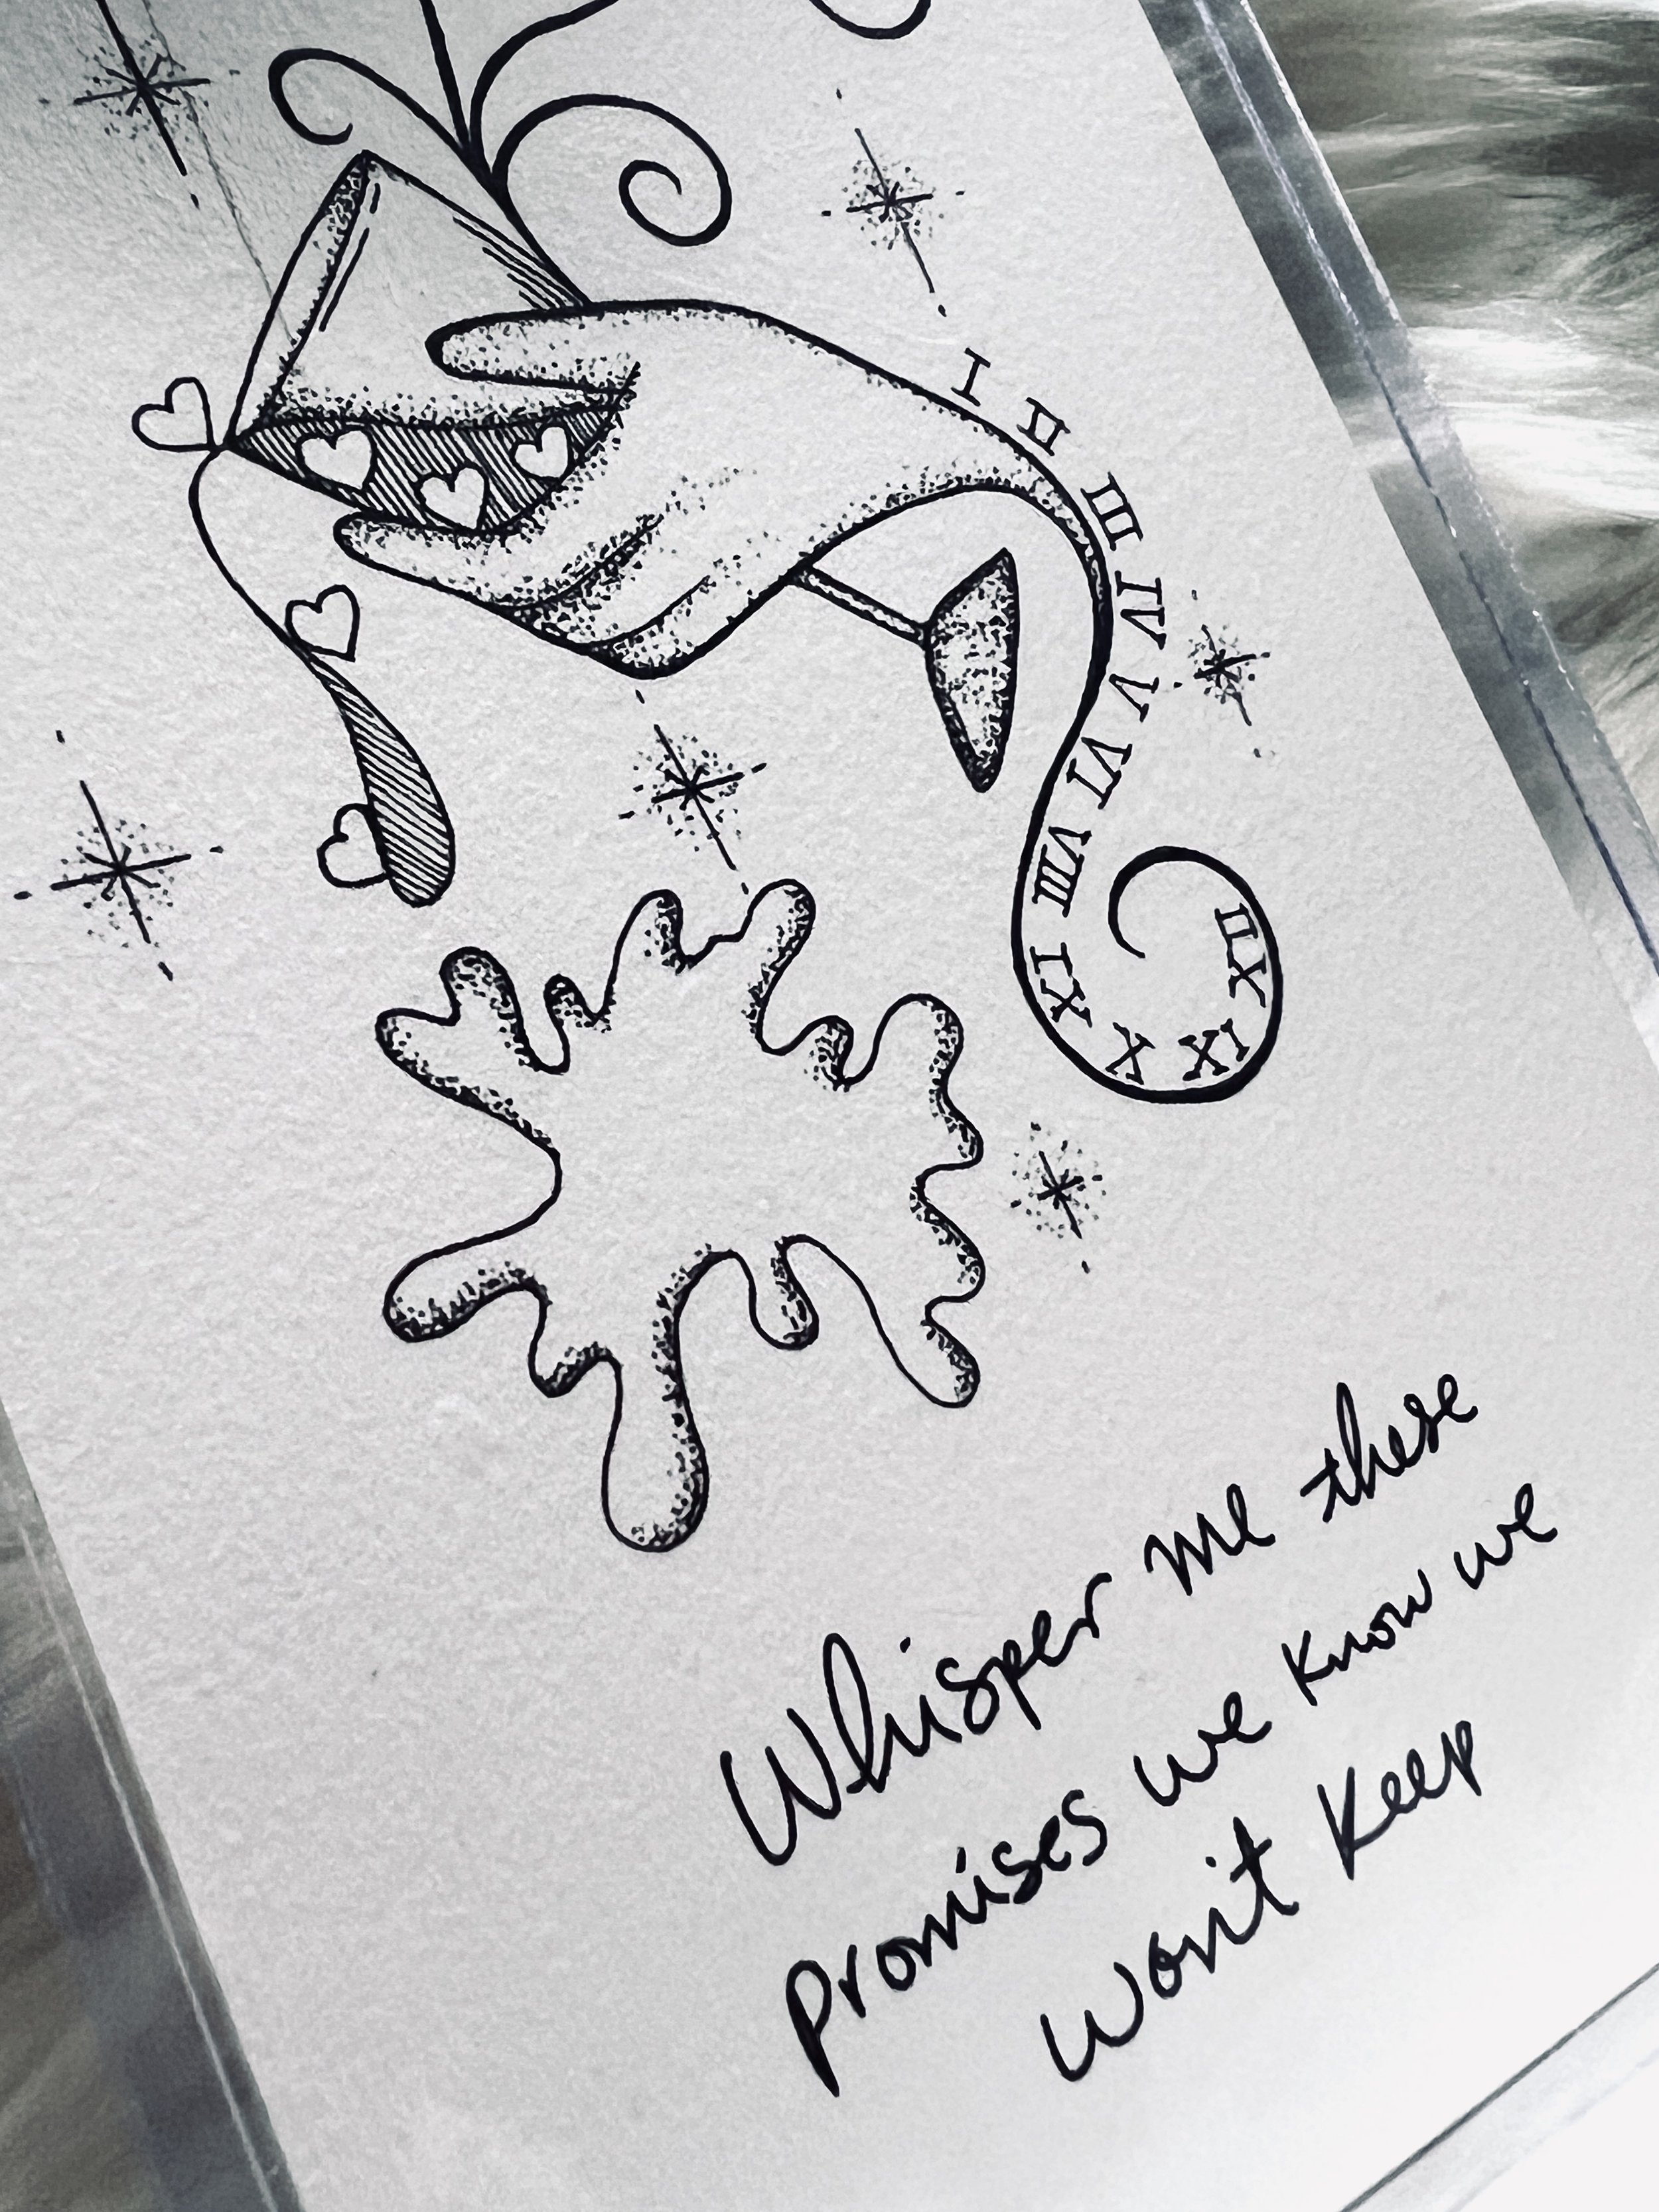 I II III IV V VI VIII IX X XI XII
Whisper me these
promises we know we
Won't Keep